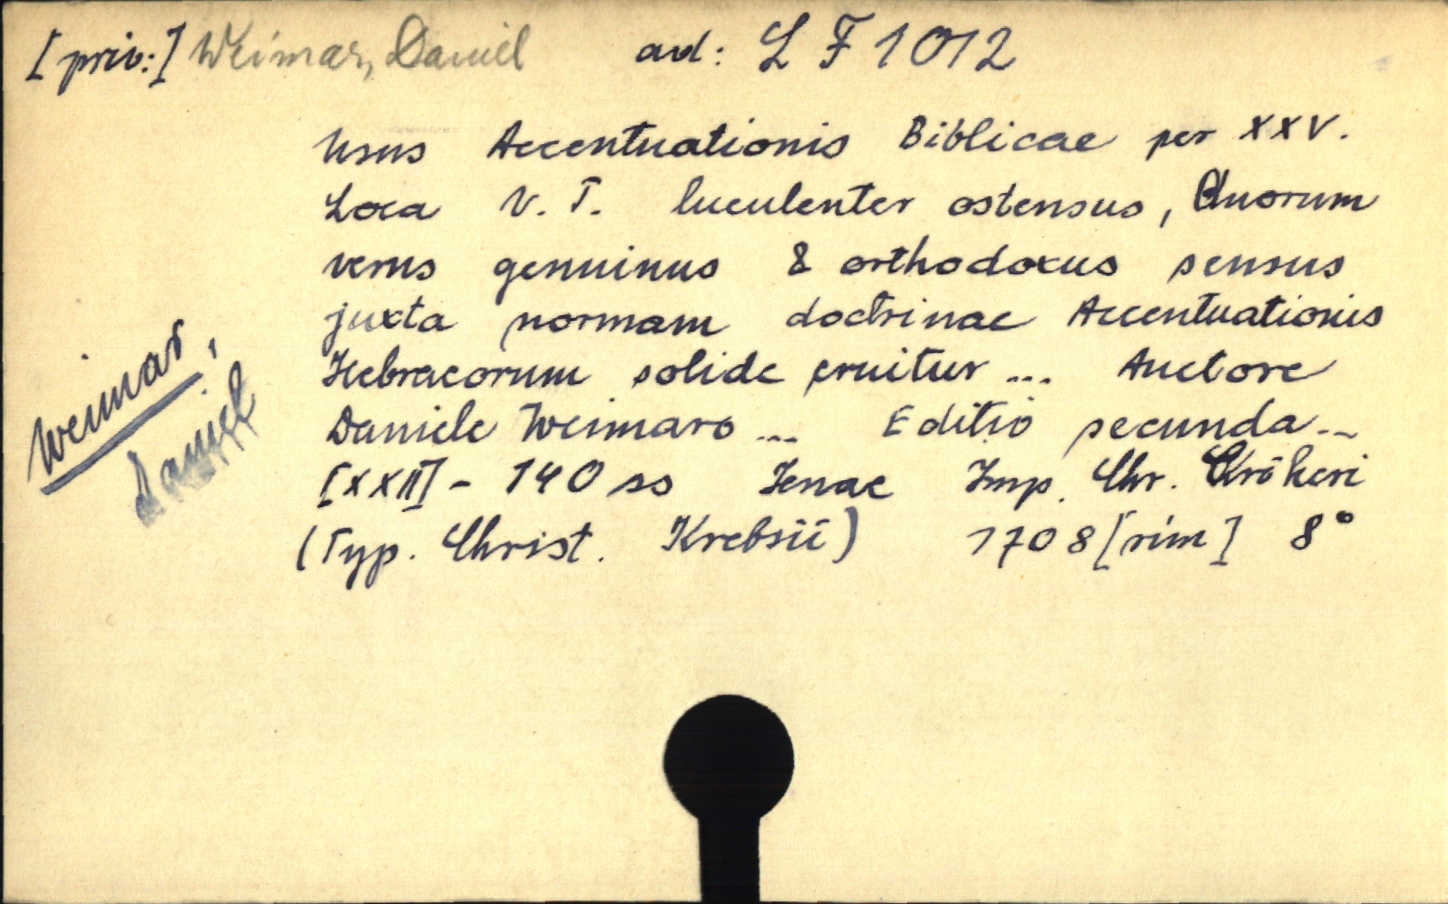 [priv:] Weimar, Daniel ad: L F 1012
Usus Accentuationis Biblicae per XXV.
Loca V. T. luculenter ostensus, Quorum
verus genuinus & orthodoxus sensus
juxta normam doctrinae Accentuationis
Hebraeorum solide eruitur ... Auctore
Daniele Weimaro ... Editio secunda ...
[XXII] - 140 ss Jenae Imp. Chr. Krökeri
(Typ. Christ. Krebsii) 1708 [rím] 8°
Weimar,
Daniel